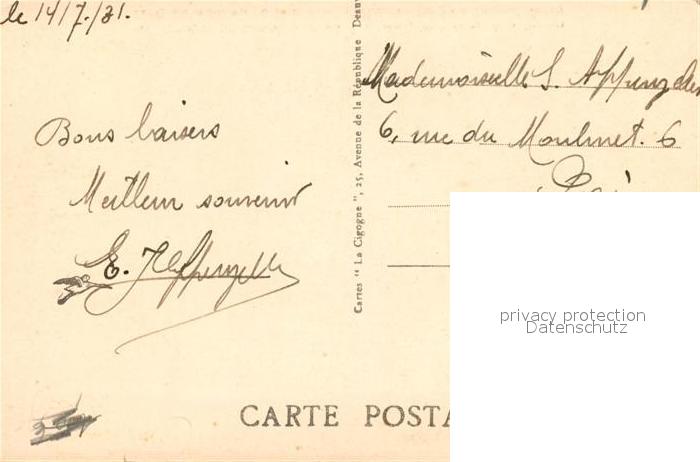 le 14/7/31.
Bons baisers
Meilleur souvenir
E.
Cartes " La Cigogne ", 25, Avenue de la République
Mademoiselle S.
6, rue du Moulinet. 6
CARTE POSTA
privacy protection
Datenschutz